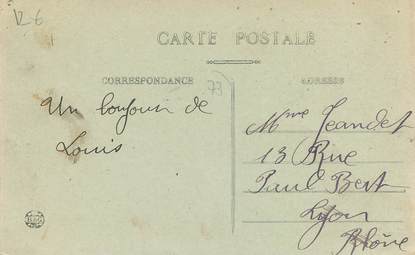 V26
CARTE POSTALE
CORRESPONDANCE
ADRESSE
73
Un bonjour de
Louis
Mme Jeandet
13 Rue
Paul Bert
Lyon
Rhône